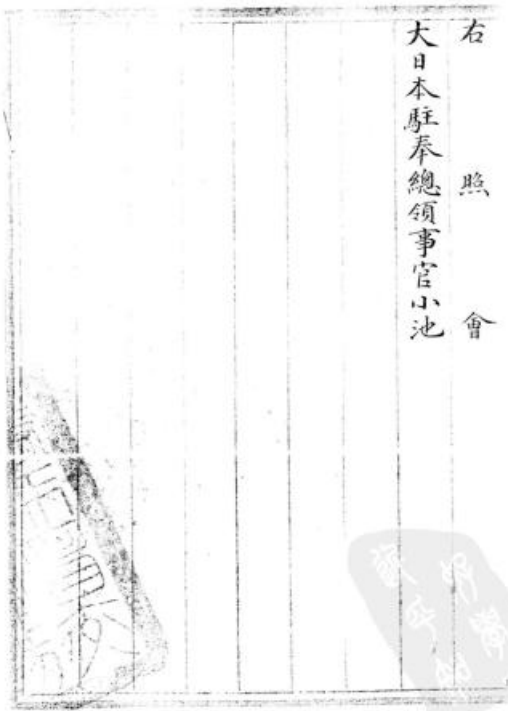 右照會
大日本駐奉總領事官小池